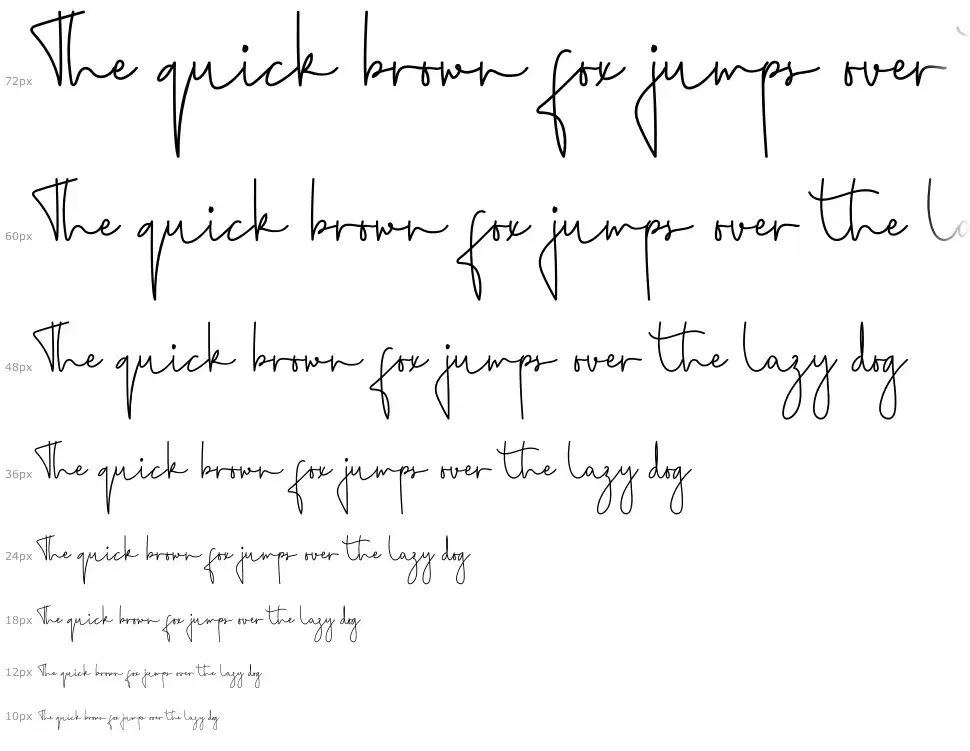 72px The quick brown fox jumps over
60px The quick brown fox jumps over the la
48px The quick brown fox jumps over the lazy dog
36px The quick brown fox jumps over the lazy dog
24px The quick brown fox jumps over the lazy dog
18px The quick brown fox jumps over the lazy dog
12px The quick brown fox jumps over the lazy dog
10px The quick brown fox jumps over the lazy dog